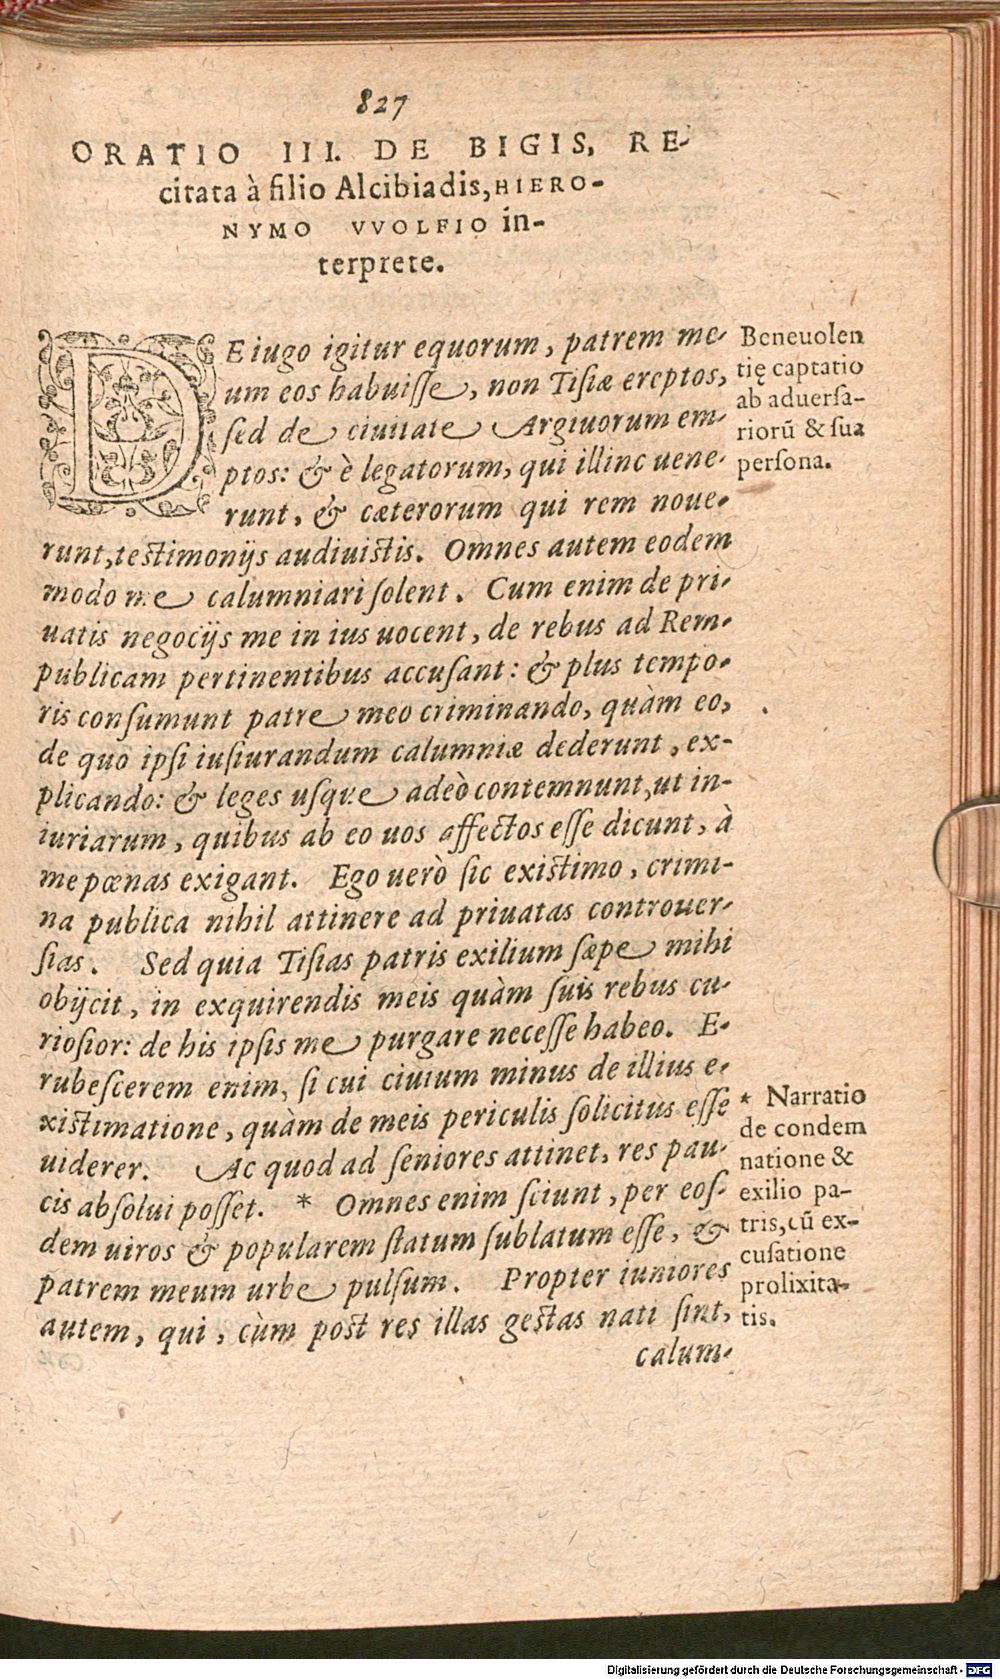 827
ORATIO III. DE BIGIS, RE-
citata à filio Alcibiadis, HIERO-
NYMO VVOLFIO in-
terprete.
DE iugo igitur equorum, patrem me-
um eos habuisse, non Tisiæ ereptos,
sed de ciuitate Argiuorum em-
ptos: & è legatorum, qui illinc uene-
runt, & cæterorum qui rem noue-
runt, testimonijs audiuistis. Omnes autem eodem
modo me calumniari solent. Cum enim de pri-
uatis negocijs me in ius uocent, de rebus ad Rem-
publicam pertinentibus accusant: & plus tempo-
ris consumunt patre meo criminando, quàm eo,
de quo ipsi iusiurandum calumniæ dederunt, ex-
plicando: & leges usque adeò contemnunt, ut in-
iuriarum, quibus ab eo uos affectos esse dicunt, à
me pœnas exigant. Ego uerò sic existimo, crimi-
na publica nihil attinere ad priuatas controuer-
sias. Sed quia Tisias patris exilium sæpe mihi
obijcit, in exquirendis meis quàm suis rebus cu-
riosior: de his ipsis me purgare necesse habeo. E-
rubescerem enim, si cui ciuium minus de illius e-
xistimatione, quàm de meis periculis solicitus esse
uiderer. Ac quod ad seniores attinet, res pau-
cis absolui posset. * Omnes enim sciunt, per eos-
dem uiros & popularem statum sublatum esse, &
patrem meum urbe pulsum. Propter iuniores
autem, qui, cùm post res illas gestas nati sint,
calum-
Beneuolen
tię captatio
ab aduersa-
riorũ & sua
persona.
* Narratio
de condem
natione &
exilio pa-
tris, cũ ex-
cusatione
prolixita-
tis.
Digitalisierung gefördert durch die Deutsche Forschungsgemeinschaft - DFG